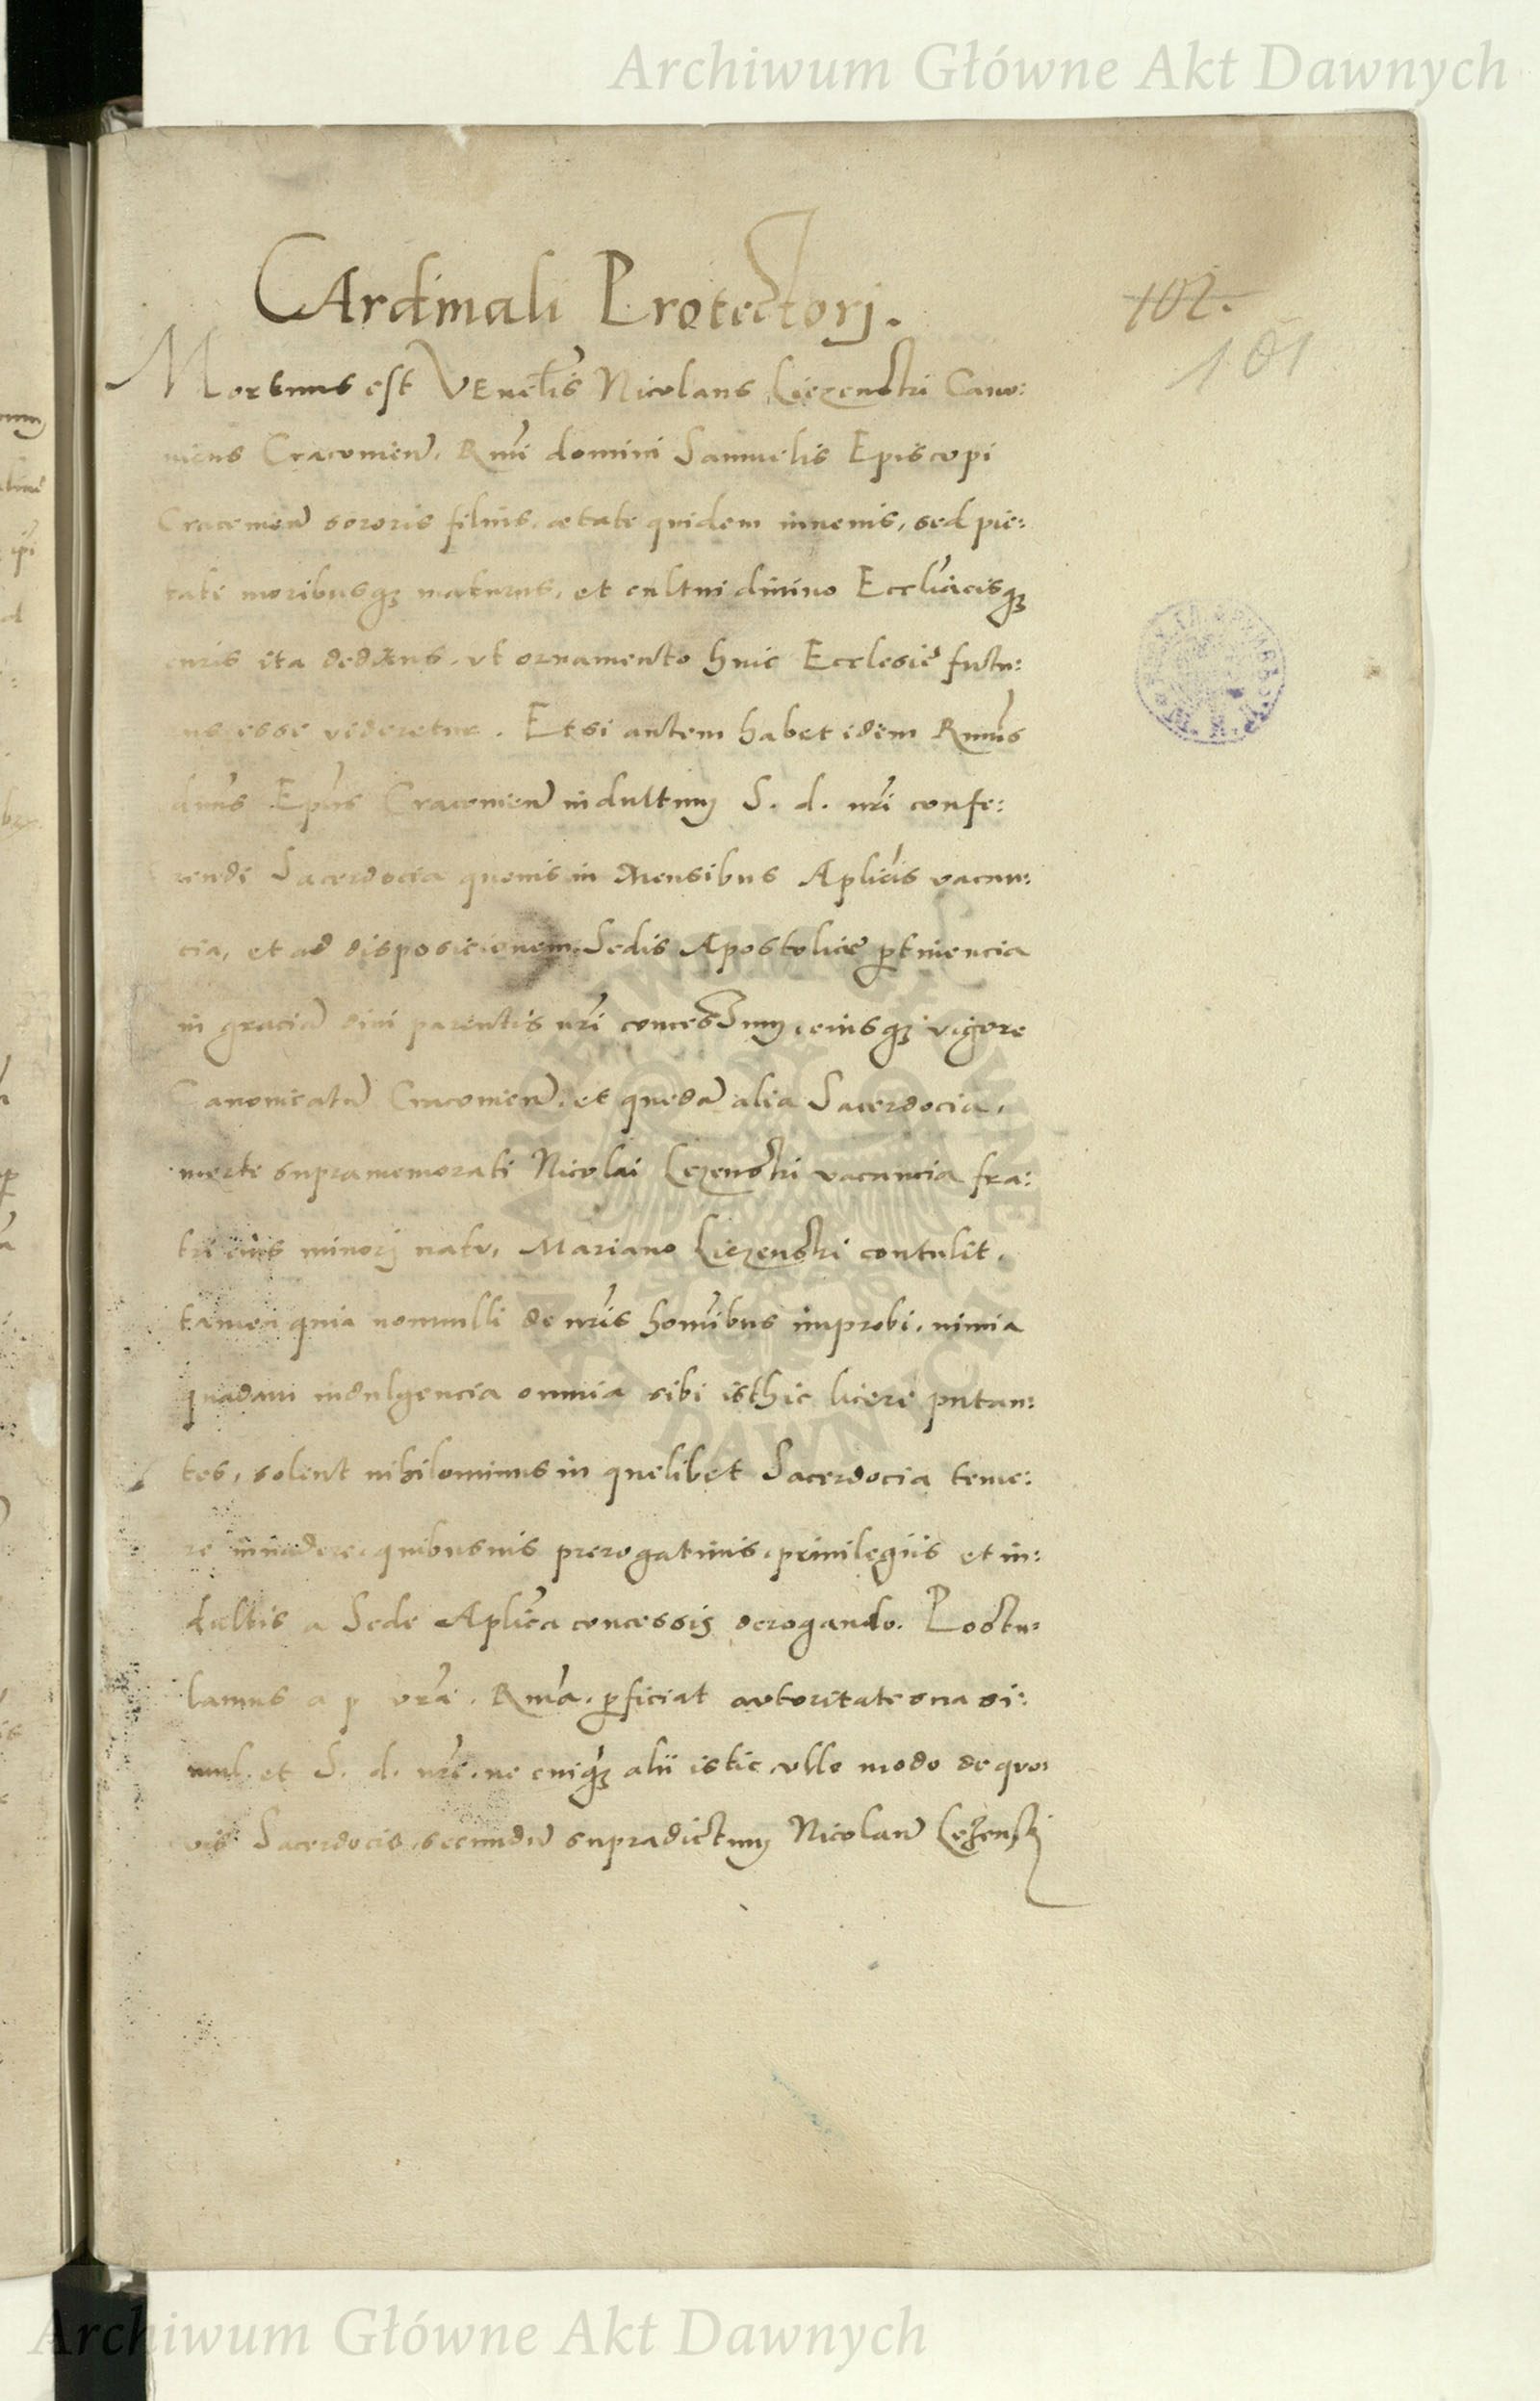 Archiwum Główne Akt Dawnych
CArdinali Protectorj.
102.
101
Mortuus est VEnelis Nicolaus Liezenski Cano:
nicus Cracouien. Rmi domini Samuelis Episcopi
Cracouien sororis filius, ætate quidem iuuenis, sed pie:
tate moribusq; maturus, et cultui diuino Eccliacisq;
curis ita deditus, vt ornamento huic Ecclesię futu:
us esse videretur. Etsi autem habet idem Rmus
dnus Epus Cracouien indultum S. d. nri confe:
rendi Sacerdocia queuis in Mensibus Aplicis vacan:
cia, et ad disposicionem Sedis Apostolicę ptinencia
in graciā diui parentis nri concessum, eiusq; vigore
Canonicatū Cracouien. et quedā alia Sacerdocia,
morte supramemorati Nicolai Lezenski vacancia fra:
tri eius minorj natu, Mariano Liezenski contulit,
tamen quia nonnulli de nris hominibus improbi, nimia
quadam indulgencia omnia sibi isthic licere putan:
tes, solent nihilominus in quelibet Sacerdocia teme:
re inuadere, quibusuis prerogatiuis, priuilegiis et in:
dultis a Sede Aplica concessis derogando. Postu:
lamus a p vra. Rma. pficiat autoritate sua si:
mul et S. d. nri. ne cuiq; alii istic vllo modo de quo:
uis Sacerdocio, secundū supradictum Nicolaū Leżenskj
Archiwum Główne Akt Dawnych